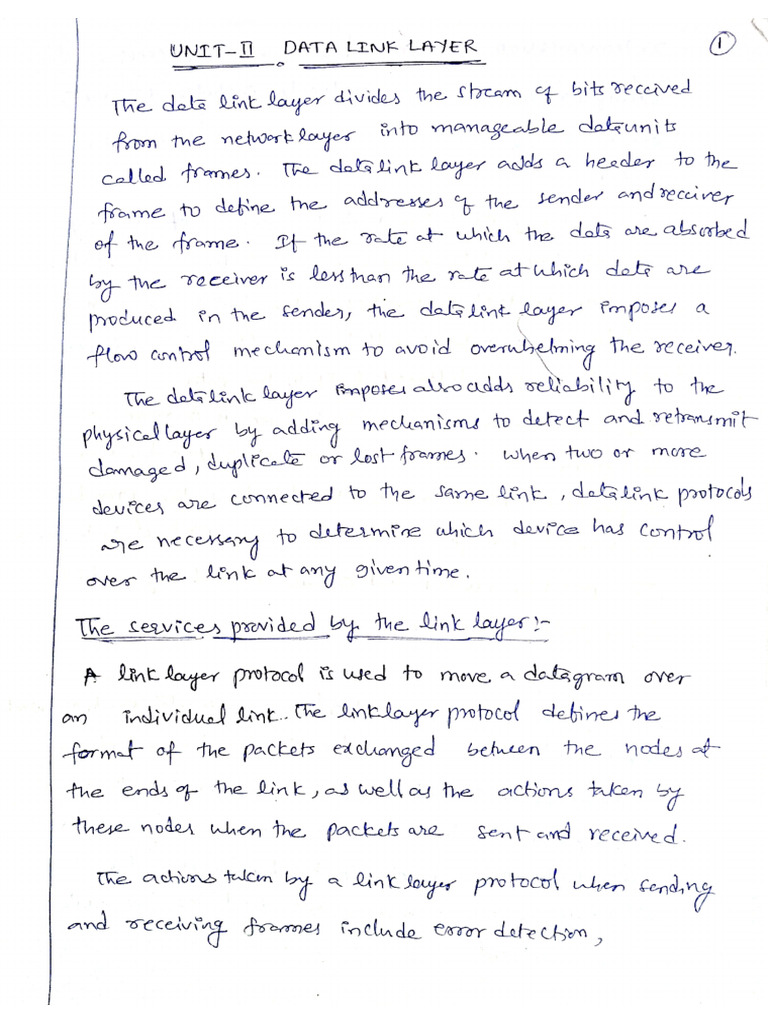 UNIT-II DATA LINK LAYER
1
The data link layer divides the stream of bits received
from the network layer into manageable data units
called frames. The data link layer adds a header to the
frame to define the addresses of the sender and receiver
of the frame. If the rate at which the data are absorbed
by the receiver is less than the rate at which data are
produced in the sender, the data link layer imposes a
flow control mechanism to avoid overwhelming the receiver.
The data link layer imposes also adds reliability to the
physical layer by adding mechanisms to detect and retransmit
damaged, duplicate or lost frames. When two or more
devices are connected to the same link, data link protocols
are necessary to determine which device has control
over the link at any given time.
The services provided by the link layer:-
A link layer protocol is used to move a datagram over
an individual link. The link layer protocol defines the
format of the packets exchanged between the nodes at
the ends of the link, as well as the actions taken by
these nodes when the packets are sent and received.
The actions taken by a link layer protocol when sending
and receiving frames include error detection,